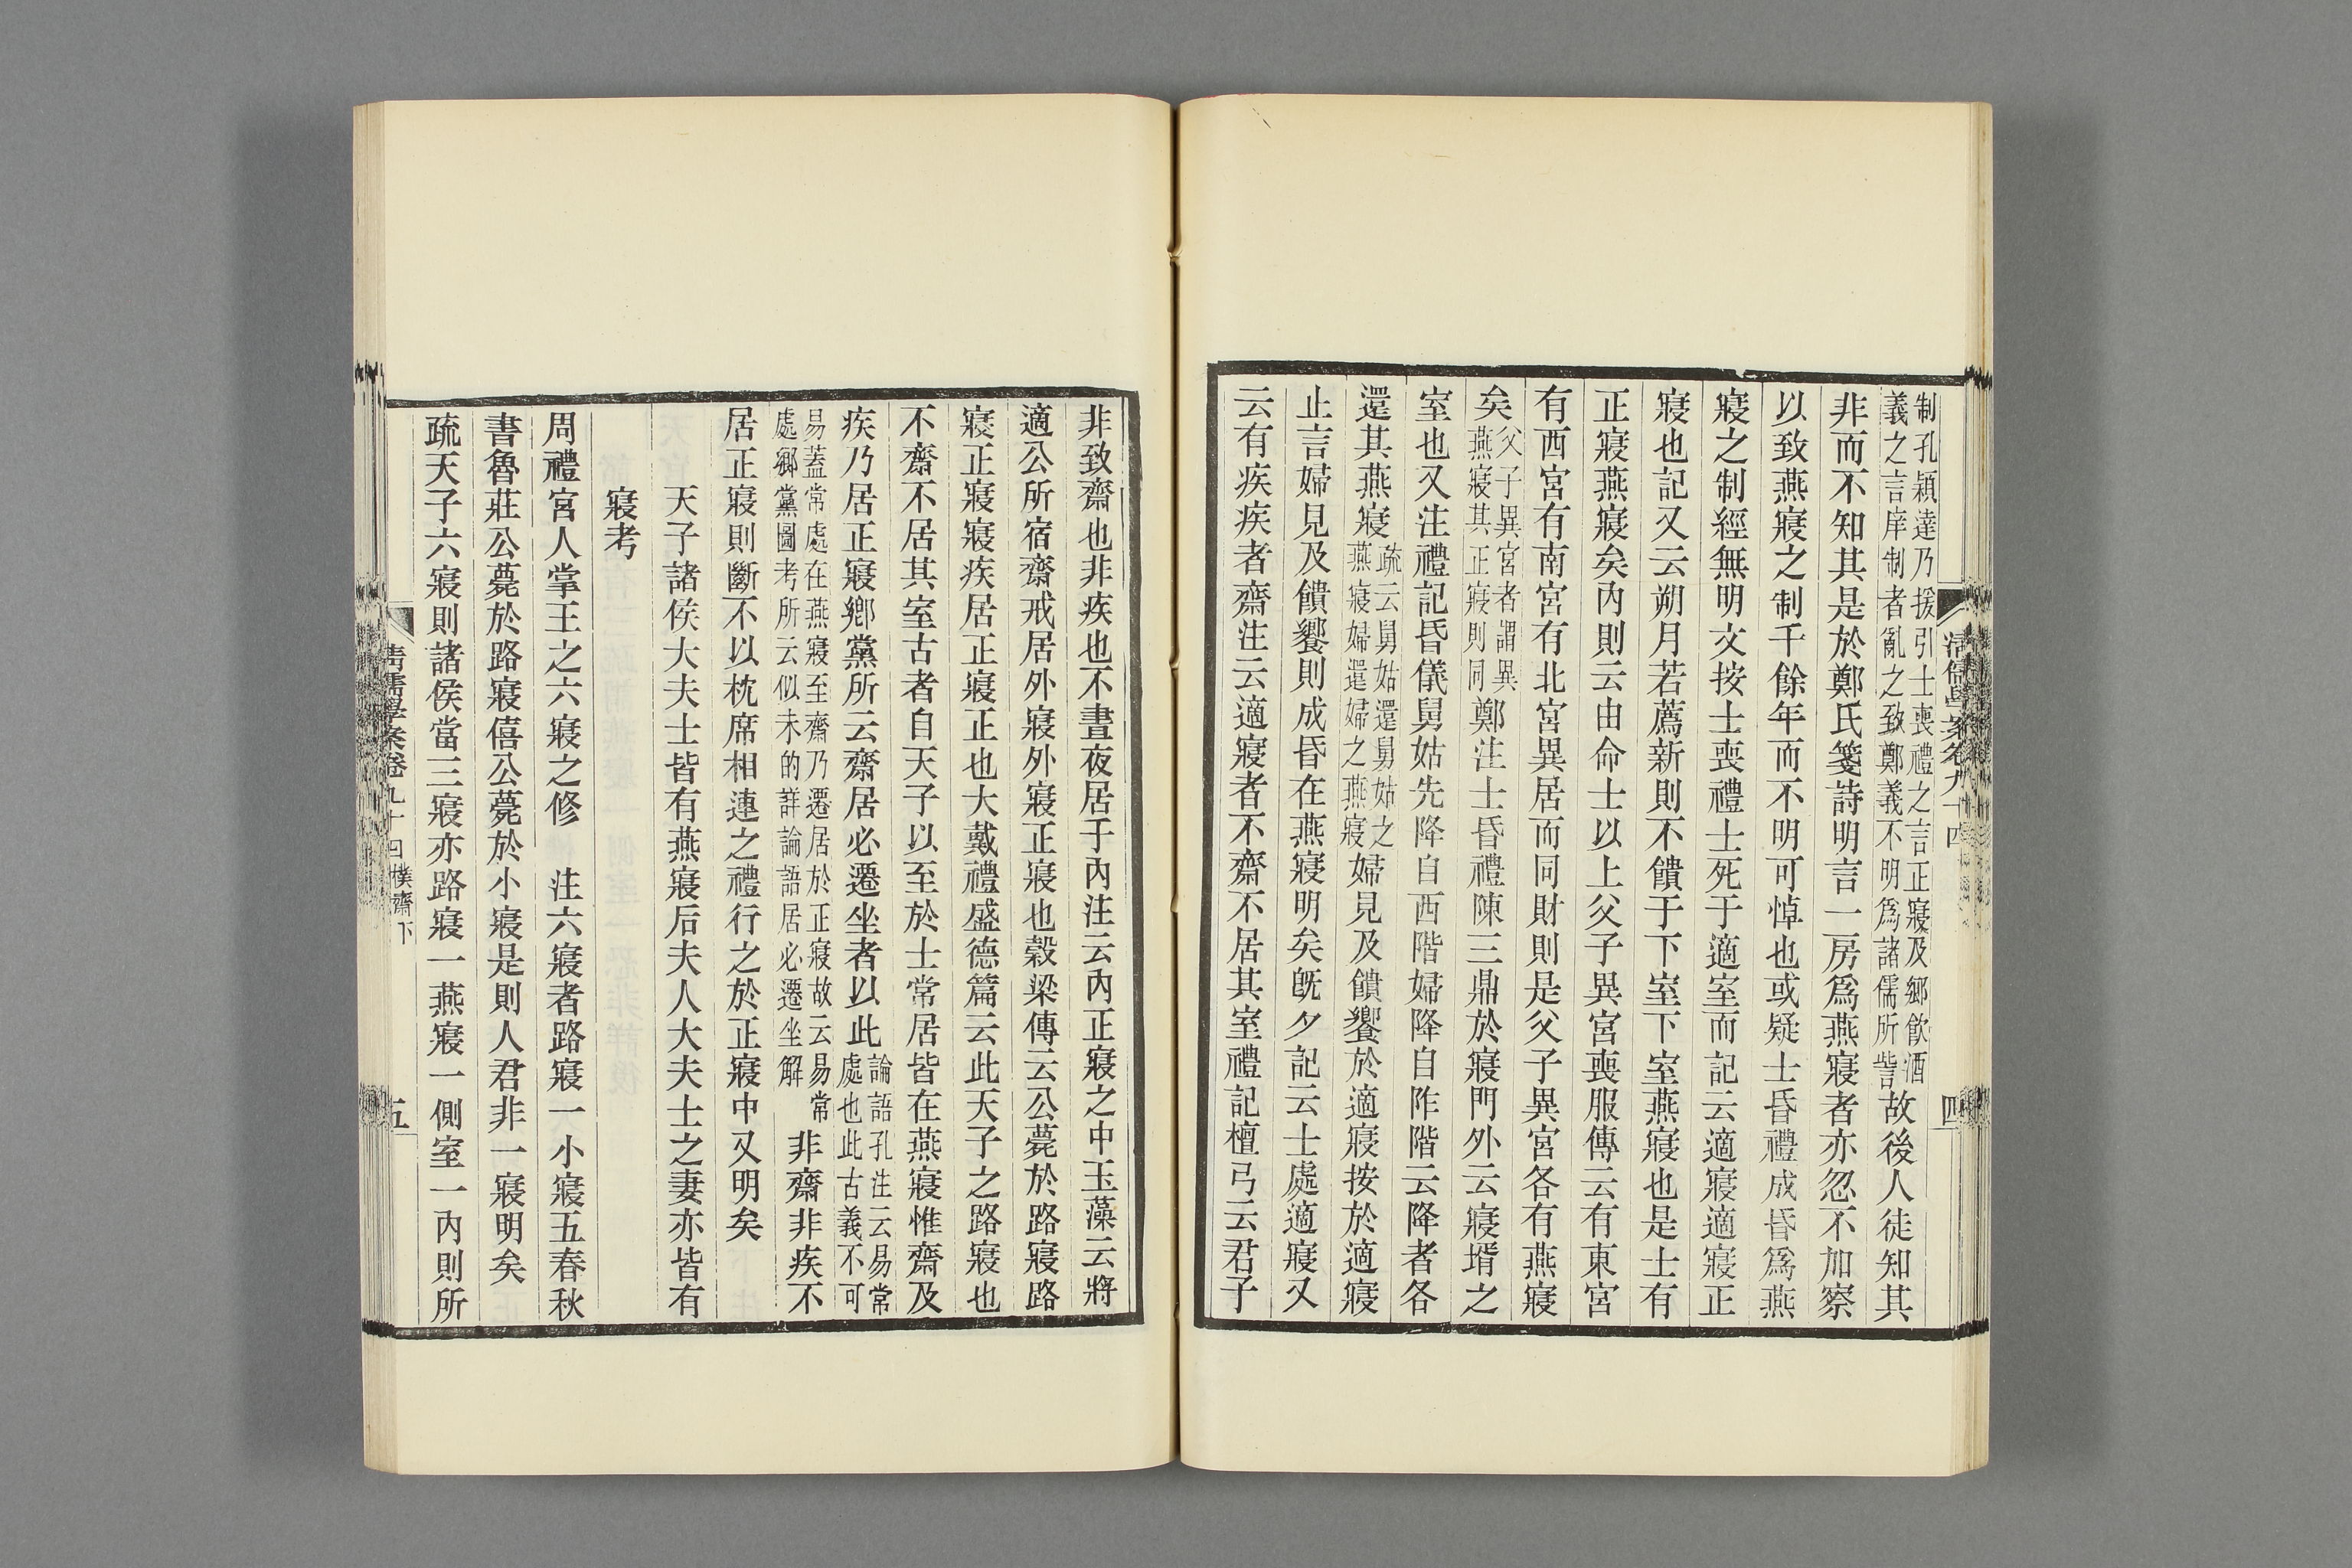 清儒學案卷九十四
四
制孔穎達乃援引士喪禮之言正寢及鄉飲酒
義之言庠制者亂之致鄭義不明爲諸儒所訾故後人徒知其
非而不知其是於鄭氏箋詩明言一房爲燕寢者亦忽不加察
以致燕寢之制千餘年而不明可悼也或疑士昏禮成昏爲燕
寢之制經無明文按士喪禮士死于適室而記云適寢適寢正
寢也記又云朔月若薦新則不饋于下室下室燕寢也是士有
正寢燕寢矣內則云由命士以上父子異宮喪服傳云有東宮
有西宮有南宮有北宮異居而同財則是父子異宮各有燕寢
矣父子異宮者謂異
燕寢其正寢則同鄭注士昏禮陳三鼎於寢門外云寢壻之
室也又注禮記昏儀舅姑先降自西階婦降自阼階云降者各
還其燕寢疏云舅姑還舅姑之
燕寢婦還婦之燕寢婦見及饋饗於適寢按於適寢
止言婦見及饋饗則成昏在燕寢明矣旣夕記云士處適寢又
云有疾疾者齋注云適寢者不齋不居其室禮記檀弓云君子
非致齋也非疾也不晝夜居于內注云內正寢之中玉藻云將
適公所宿齋戒居外寢外寢正寢也穀梁傳云公薨於路寢路
寢正寢寢疾居正寢正也大戴禮盛德篇云此天子之路寢也
不齋不居其室古者自天子以至於士常居皆在燕寢惟齋及
疾乃居正寢鄉黨所云齋居必遷坐者以此論語孔注云易常
處也此古義不可
易蓋常處在燕寢至齋乃遷居於正寢故云易常
處鄉黨圖考所云似未的詳論語居必遷坐解 非齋非疾不
居正寢則斷不以枕席相連之禮行之於正寢中又明矣
天子諸侯大夫士皆有燕寢后夫人大夫士之妻亦皆有
寢考
周禮宮人掌王之六寢之修 注六寢者路寢一小寢五春秋
書魯莊公薨於路寢僖公薨於小寢是則人君非一寢明矣
疏天子六寢則諸侯當三寢亦路寢一燕寢一側室一內則所
清儒學案卷九十四 樸齋下
五